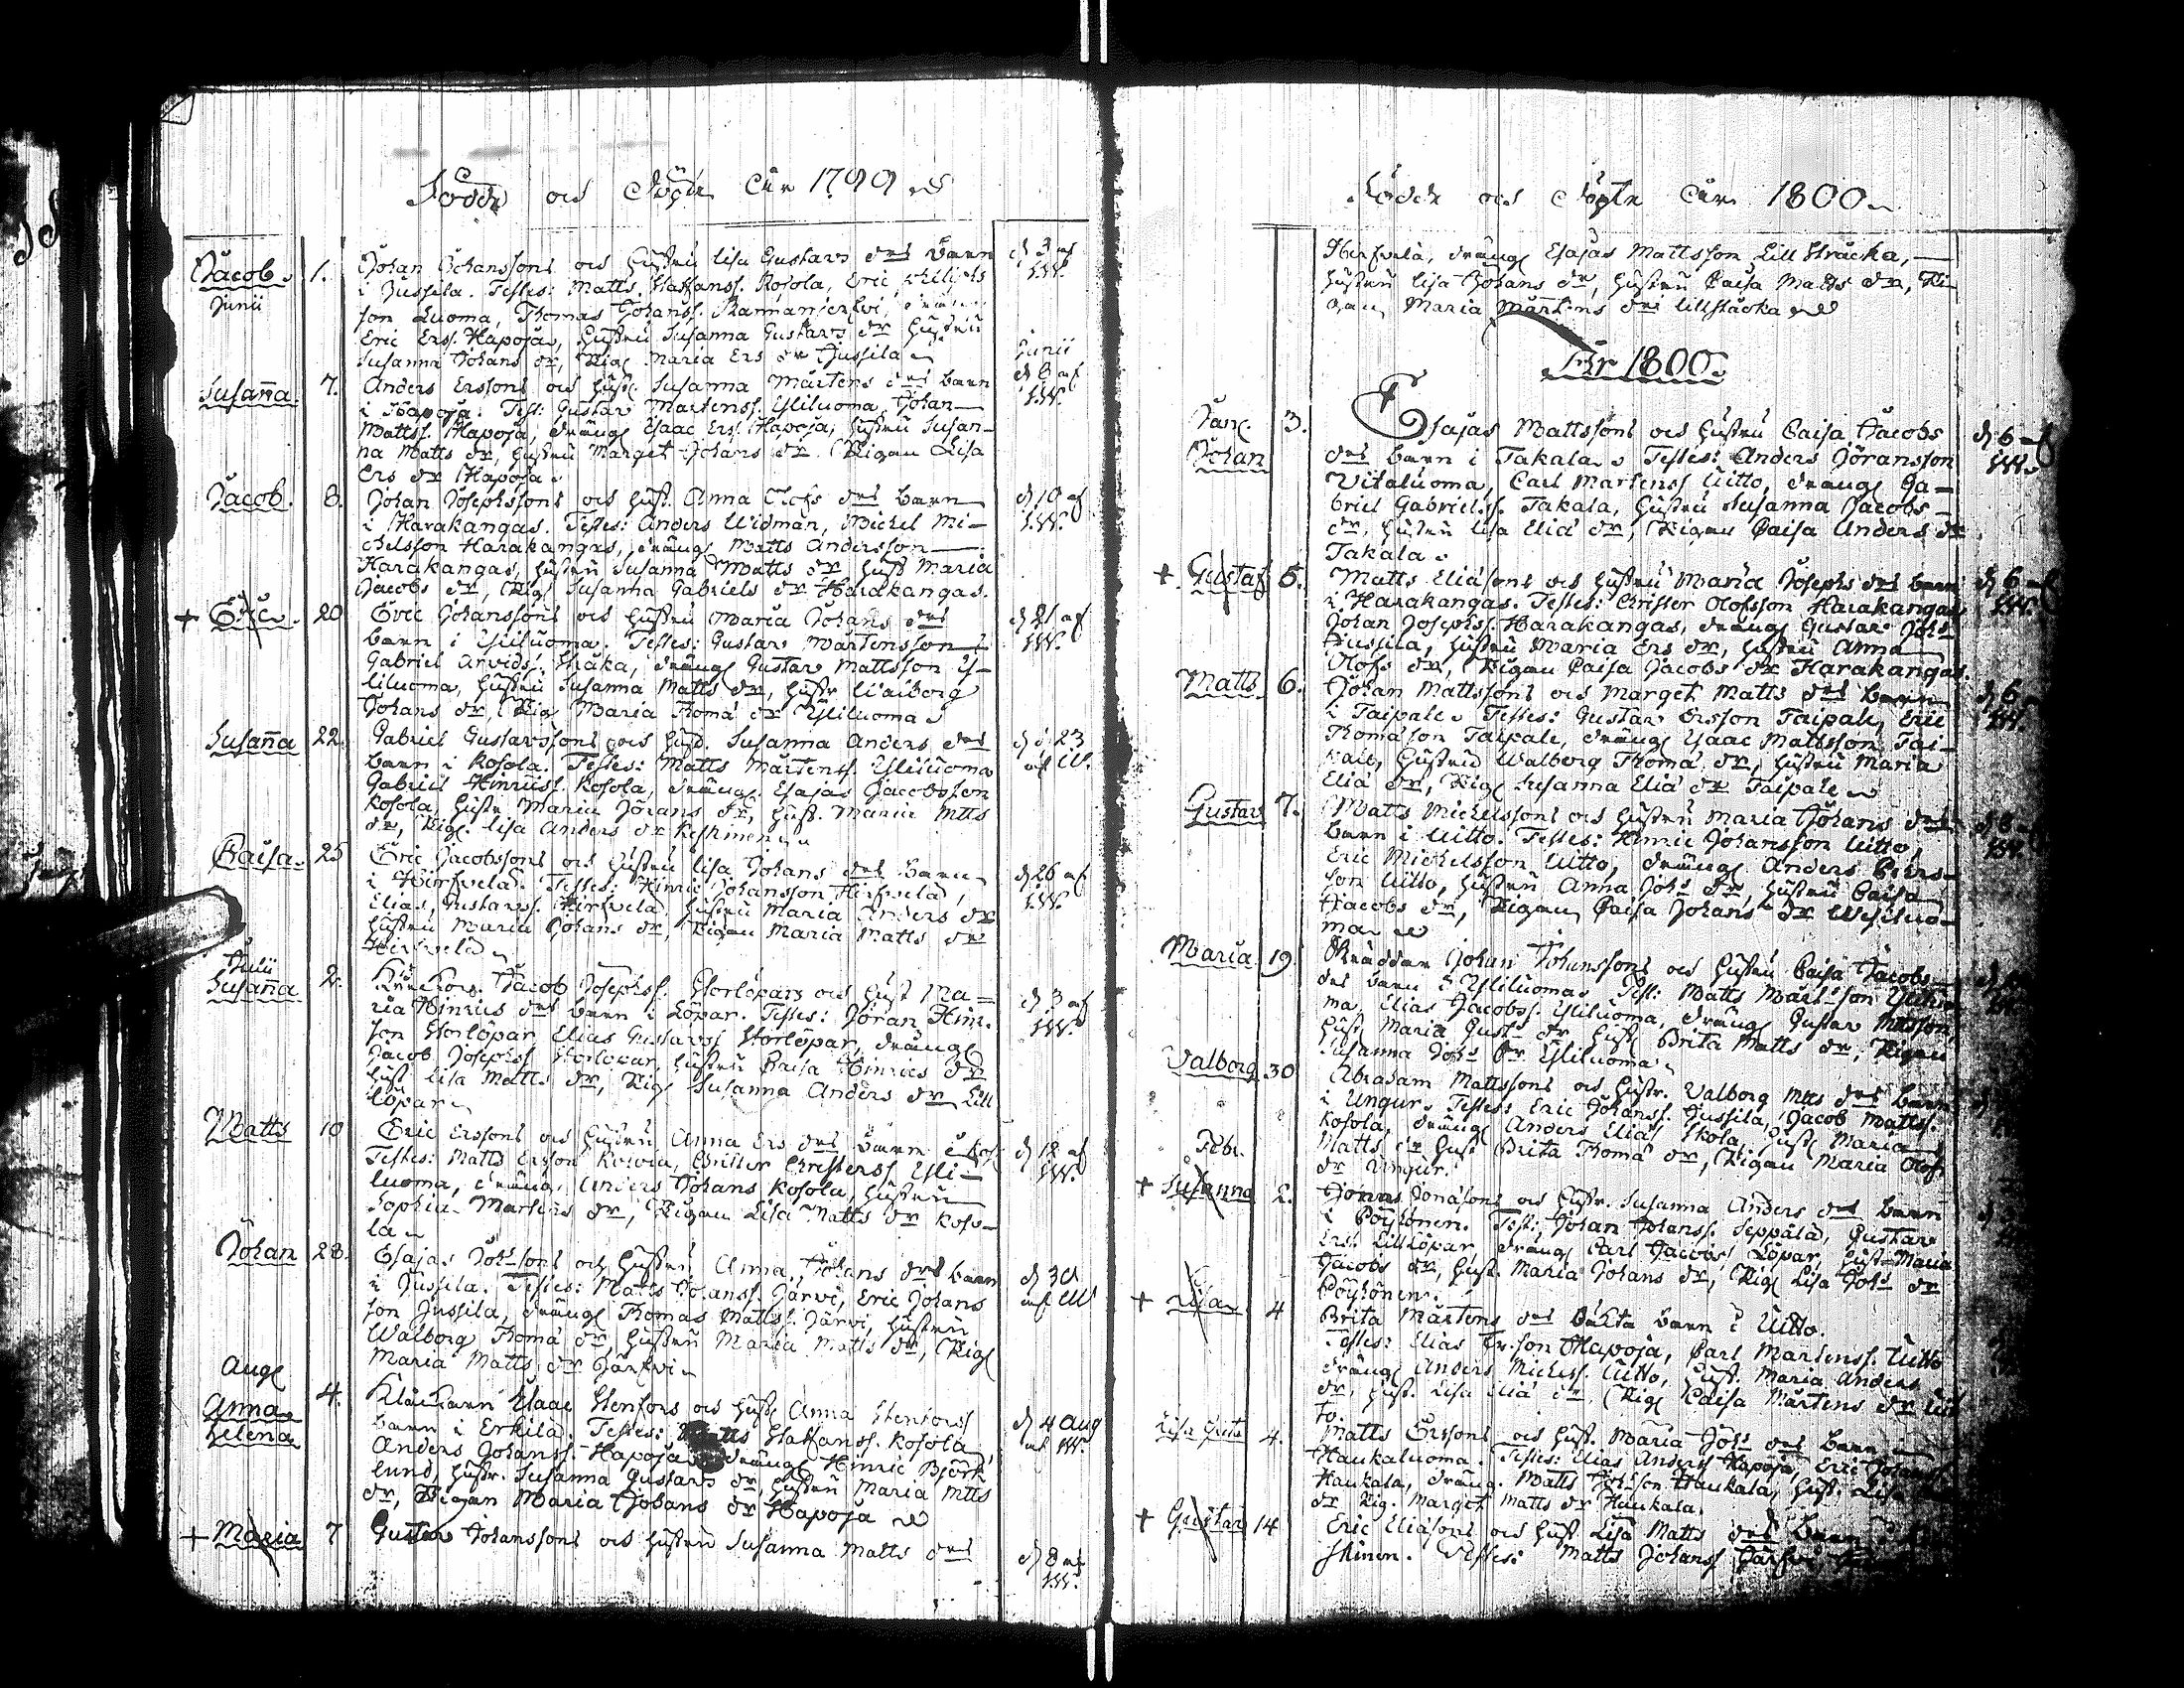 Födde och Döpte År 1799
Jacob. 1. Johan Johanssons och Hustru Lisa Gustavs drs barn d 3 af
Junii i Jussila. Testes: Matts Staffanss. Kosola, Eric
son Luoma, Thomas Johanss. Rannanjerfvi, dräng
Eric Erss. Hapoja, Hustru Susanna Gustavs dr Hustru
Susanna Johans dr, Pig. Maria Ers dr Jussila Junii
Susanna. 7. Anders Erssons och Hust. Susanna Mårtens drs barn d 8 af
i Hapoja. Test: Gustav Mårtenss. Yliluoma, Johan
Mattss. Hapoja, dräng Esaac Erss. Hapoja, Hustru Susan-
na Matts dr, Hustru Marget Johans dr. Pigan Lisa
Ers dr Hapoja.
Jacob. 8. Johan Josephssons och Hust. Anna Olofs drs barn d 10 af
i Harakangas. Testes: Anders Widman, Michel Mi-
chelsson Harakangas, dräng Matts Andersson
Harakangas, Hustru Susanna Matts dr Hust Maria
Jacobs dr, Pig Susanna Gabriels dr Harakangas.
+ Eric. 20 Eric Johanssons och Hustru Maria Johans drs d 21 af
barn i Yliluoma. Testes: Gustav Mårtensson
Gabriel Arvidss. Stråka, dräng Gustav Mattsson Y-
liluoma, Hustru Susanna Matts dr, Hustr Walborg
Johans dr, Pig Maria Thomä dr Yliluoma
Susanna 22. Gabriel Gustavssons och Hust. Susanna Anders drs d. 23
barn i Kosola. Testes: Matts Mårtenss. Yliluoma
Gabriel Hinricss. Kosola, dräng. Esajas Jacobsson
Kosola, Hustr. Maria Jörans dr, Hust. Maria Mtts
dr, Pig. Lisa Anders dr Keskinen
Caisa. 25 Eric Jacobssons och Hustru Lisa Johans drs barn d 26 af
i Hirfvelä. Testes: Hinric Johansson Hirfvelä,
Elias Gustavss. Hirfvelä Hustru Maria Anders dr
Hustru Maria Johans dr, Pigan Maria Matts dr
Hirfvelä
Julii
Susanna 2. Jacob Josephss. Storlöpars och Hust Ma- d 3 af
ria Hinrics drs barn i Löpar. Testes: Jöran Hinr.
son Storlöpar Elias Gustavss Storlöpar, dräng
Jacob Josephss Storlöpar, Hustru Caisa Hinrics dr
Hust Lisa Matts dr, Pig Susanna Anders dr Lill
löpar
Matts 10 Eric Erssons och Hustru Anna Ers drs barn i d 12 af
Testes: Matts Ersson Kosola, Christer Christerss Yli-
luoma, dräng. Anders Johans Kosola, Hustru
Sophia Mårtens dr, Pigan Lisa Matts dr Koso-
la
Johan 28. Esajas Johssons och Hustru Anna Johans drs barn d 30
i Jussila. Testes: Matts Johanss. Järvi, Eric Johans
son Jussila, dräng Thomas Mattss. Järvi, Hustru
Walborg Thomä dr, Hustru Maria Matts dr, Pig
Maria Matts dr Järfvi
Aug
Anna Helena 4. Isaac Stenfors och Hust Anna Stenfors d 4 Aug
barn i Erkilä. Testes: Matts Staffanss. Kosola,
Anders Johanss. Hapoja dräng Hinric Björk
lund, Hustr. Susanna Gustavs dr, Hustru Maria Mtts
dr, Pigan Maria Johans dr Hapoja
+ Maria 7 Gustav Johanssons och Hustru Susanna Matts drs d 8 af
Födde och Döpte År 1800
Hirfvelä, dräng Esajas Mattsson Lill Stråcka,
Hustru Lisa Johans dr, Hustru Caisa Matts dr, Pi-
gan Maria Mårtens dr Lillstråcka
År 1800.
Jan. Johan 3. Esajas Mattssons och Hustru Caisa Jacobs d 6 af
drs barn i Takala. Testes: Anders Jöransson
Vitaluoma, Carl Mårtenss Uitto, dräng Ga-
briel Gabrielss. Takala, Hustru Susanna Jacobs
dr, Hustru Lisa Eliä dr, Pigan Caisa Anders dr
Takala.
+ Gustaf 5. Matts Eliäsons och Hustru Maria Josephs drs barn d 6 af
i Harakangas. Testes: Christer Olofsson Harakangas
Johan Josephs. Harakangas, dräng Gustav Johs
Jussila, Hustru Maria Ers dr, Hustru Anna
Olofs dr, Pigan Caisa Jacobs dr Harakangas.
Matts 6. Johan Mattssons och Marget Matts drs barn d 6
i Taipale. Testes: Gustav Ersson Taipale, Eric
Thomäson Taipale, dräng Isaac Mattsson Tai-
pale, Hustru Walborg Thomä dr, Hustru Maria
Eliä dr, Pig Susanna Eliä dr Taipale
Gustav 7. Matts Michelssons och Hustru Maria Johans drs d 8
barn i Uitto. Testes: Hinric Johansson Uitto,
Eric Michelsson Uitto, dräng Anders
son Uitto, Hustru Anna Johs dr, Hustru Caisa
Jacobs dr, Pigan Caisa Johans dr
ma
Maria 19. Skräddar Johan Johanssons och Hustru Caisa Jacobs
drs barn i Yliluoma. Test: Matts Mårtsson Yliluo
ma, Elias Jacobss. Yliluoma, dräng Gustav Mttsson,
Hust. Maria Gusts dr Hust. Brita Matts dr, Pigan
Susanna Johs dr Yliluoma
Valborg 30 Abraham Mattssons och Hustr. Valborg Mtts drs barn
i Ungur. Testes: Eric Johanss. Jussila, Jacob Mattss.
Kosola, dräng Anders Eliäs Skola, Hust Maria
Matts dr Hust Brita Thomä dr, Pigan Maria Olofs
dr Ungur.
Febr.
+ Susanna 2. Jonas Jonäsons och Hustr. Susanna Anders drs barn
i Pöyhönen. Test: Johan Johanss. Seppälä, Gustav
Erss. Lill Löpar, dräng Carl Jacobs Löpar, Hust Maria
Jacobs dr, Hust. Maria Johans dr, Pig Lisa Johs dr
Pöyhönen.
+ Lisa 4 Brita Mårtens drs barn i Uitto.
Testes: Elias Er.son Hapoja, Carl Mårtenss. Uitto
dräng Anders Michelss. Uitto, Hust. Maria Anders
dr, Hust. Lisa Eliä dr, Pig Caisa Mårtens dr Uit
to.
Lisa Greta 4. Matts Erssons och Hust. Maria Johs drs barn i
Haukaluoma. Testes: Elias Anderss Hapoja, Eric Johanss.
Haukala, dräng. Matts Johsson Haukala, Hust. Lisa
dr Pig. Marget Matts dr Haukala.
+ Gustav 14 Eric Eliäsons och Hust Lisa Matts drs barn
skinen. Testes: Matts Johanss Järfvi